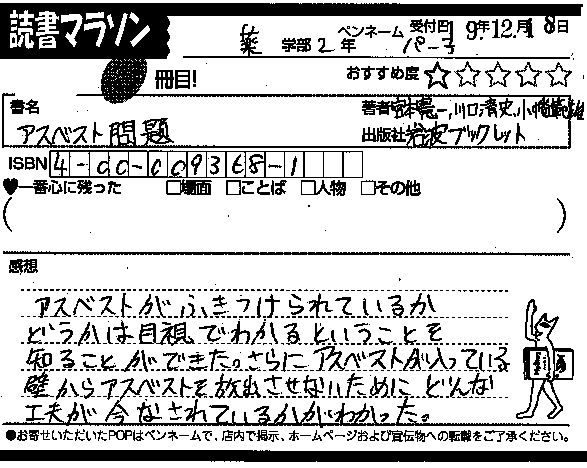 読書マラソン
薬 学部 2 年 ペンネーム パー子 受付日 19年12月18日
冊目! おすすめ度 ☆☆☆☆☆
書名 アスベスト問題
著者 宮本憲一,川口清史,小幡範雄
出版社 岩波ブックレット
ISBN 4-00-009368-1
♥一番心に残った □場面 □ことば □人物 □その他
( )
感想
アスベストがふきつけられているか
どうかは目視でわかるということを
知ることができた。さらにアスベストが入っている
壁からアスベストを放出させないためにどんな
工夫が今なされているかがわかった。
●お寄せいただいたPOPはペンネームで、店内で掲示、ホームページおよび宣伝物への転載をご了承ください。